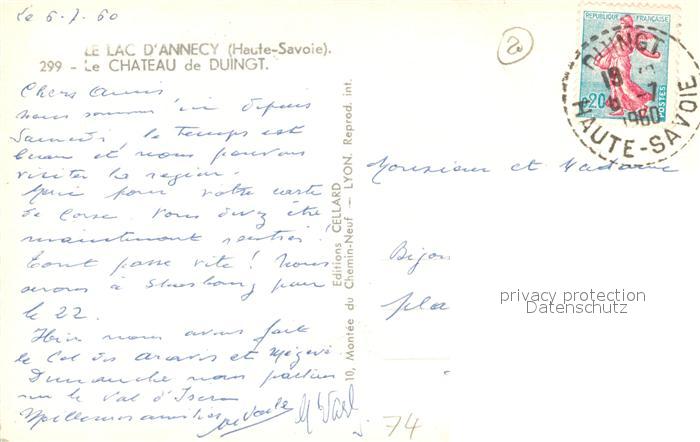 Le 6-7-60
LE LAC D'ANNECY (Haute-Savoie).
299 - Le CHATEAU de DUINGT.
2
REPUBLIQUE FRANÇAISE
0,20
POSTES
DUINGT
18
6 -7
1960
HAUTE-SAVOIE
Chers Amis
nous sommes ici depuis
Samedi le temps est
beau et nous pouvons
visiter la région.
Merci pour votre carte
de Corse. Vous devez être
maintenant rentrés!
Tout passe vite! Nous
serons à Strasbourg pour
le 22.
Hier nous avons fait
le Col des Aravis et Megève
Dimanche nous partons
sur le Val d'Isère
Meilleures amitiés
Editions CELLARD
10, Montée du Chemin-Neuf — LYON. Reprod. int.
Monsieur et Madame
Bijou
pla
privacy protection
Datenschutz
74